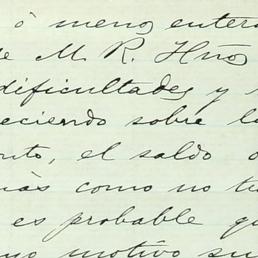 ó menos enter
de M. R. Hnos
dificultades y
eciendo sobre la
nto, el saldo d
más como no t
es probable qu
yo motivo su